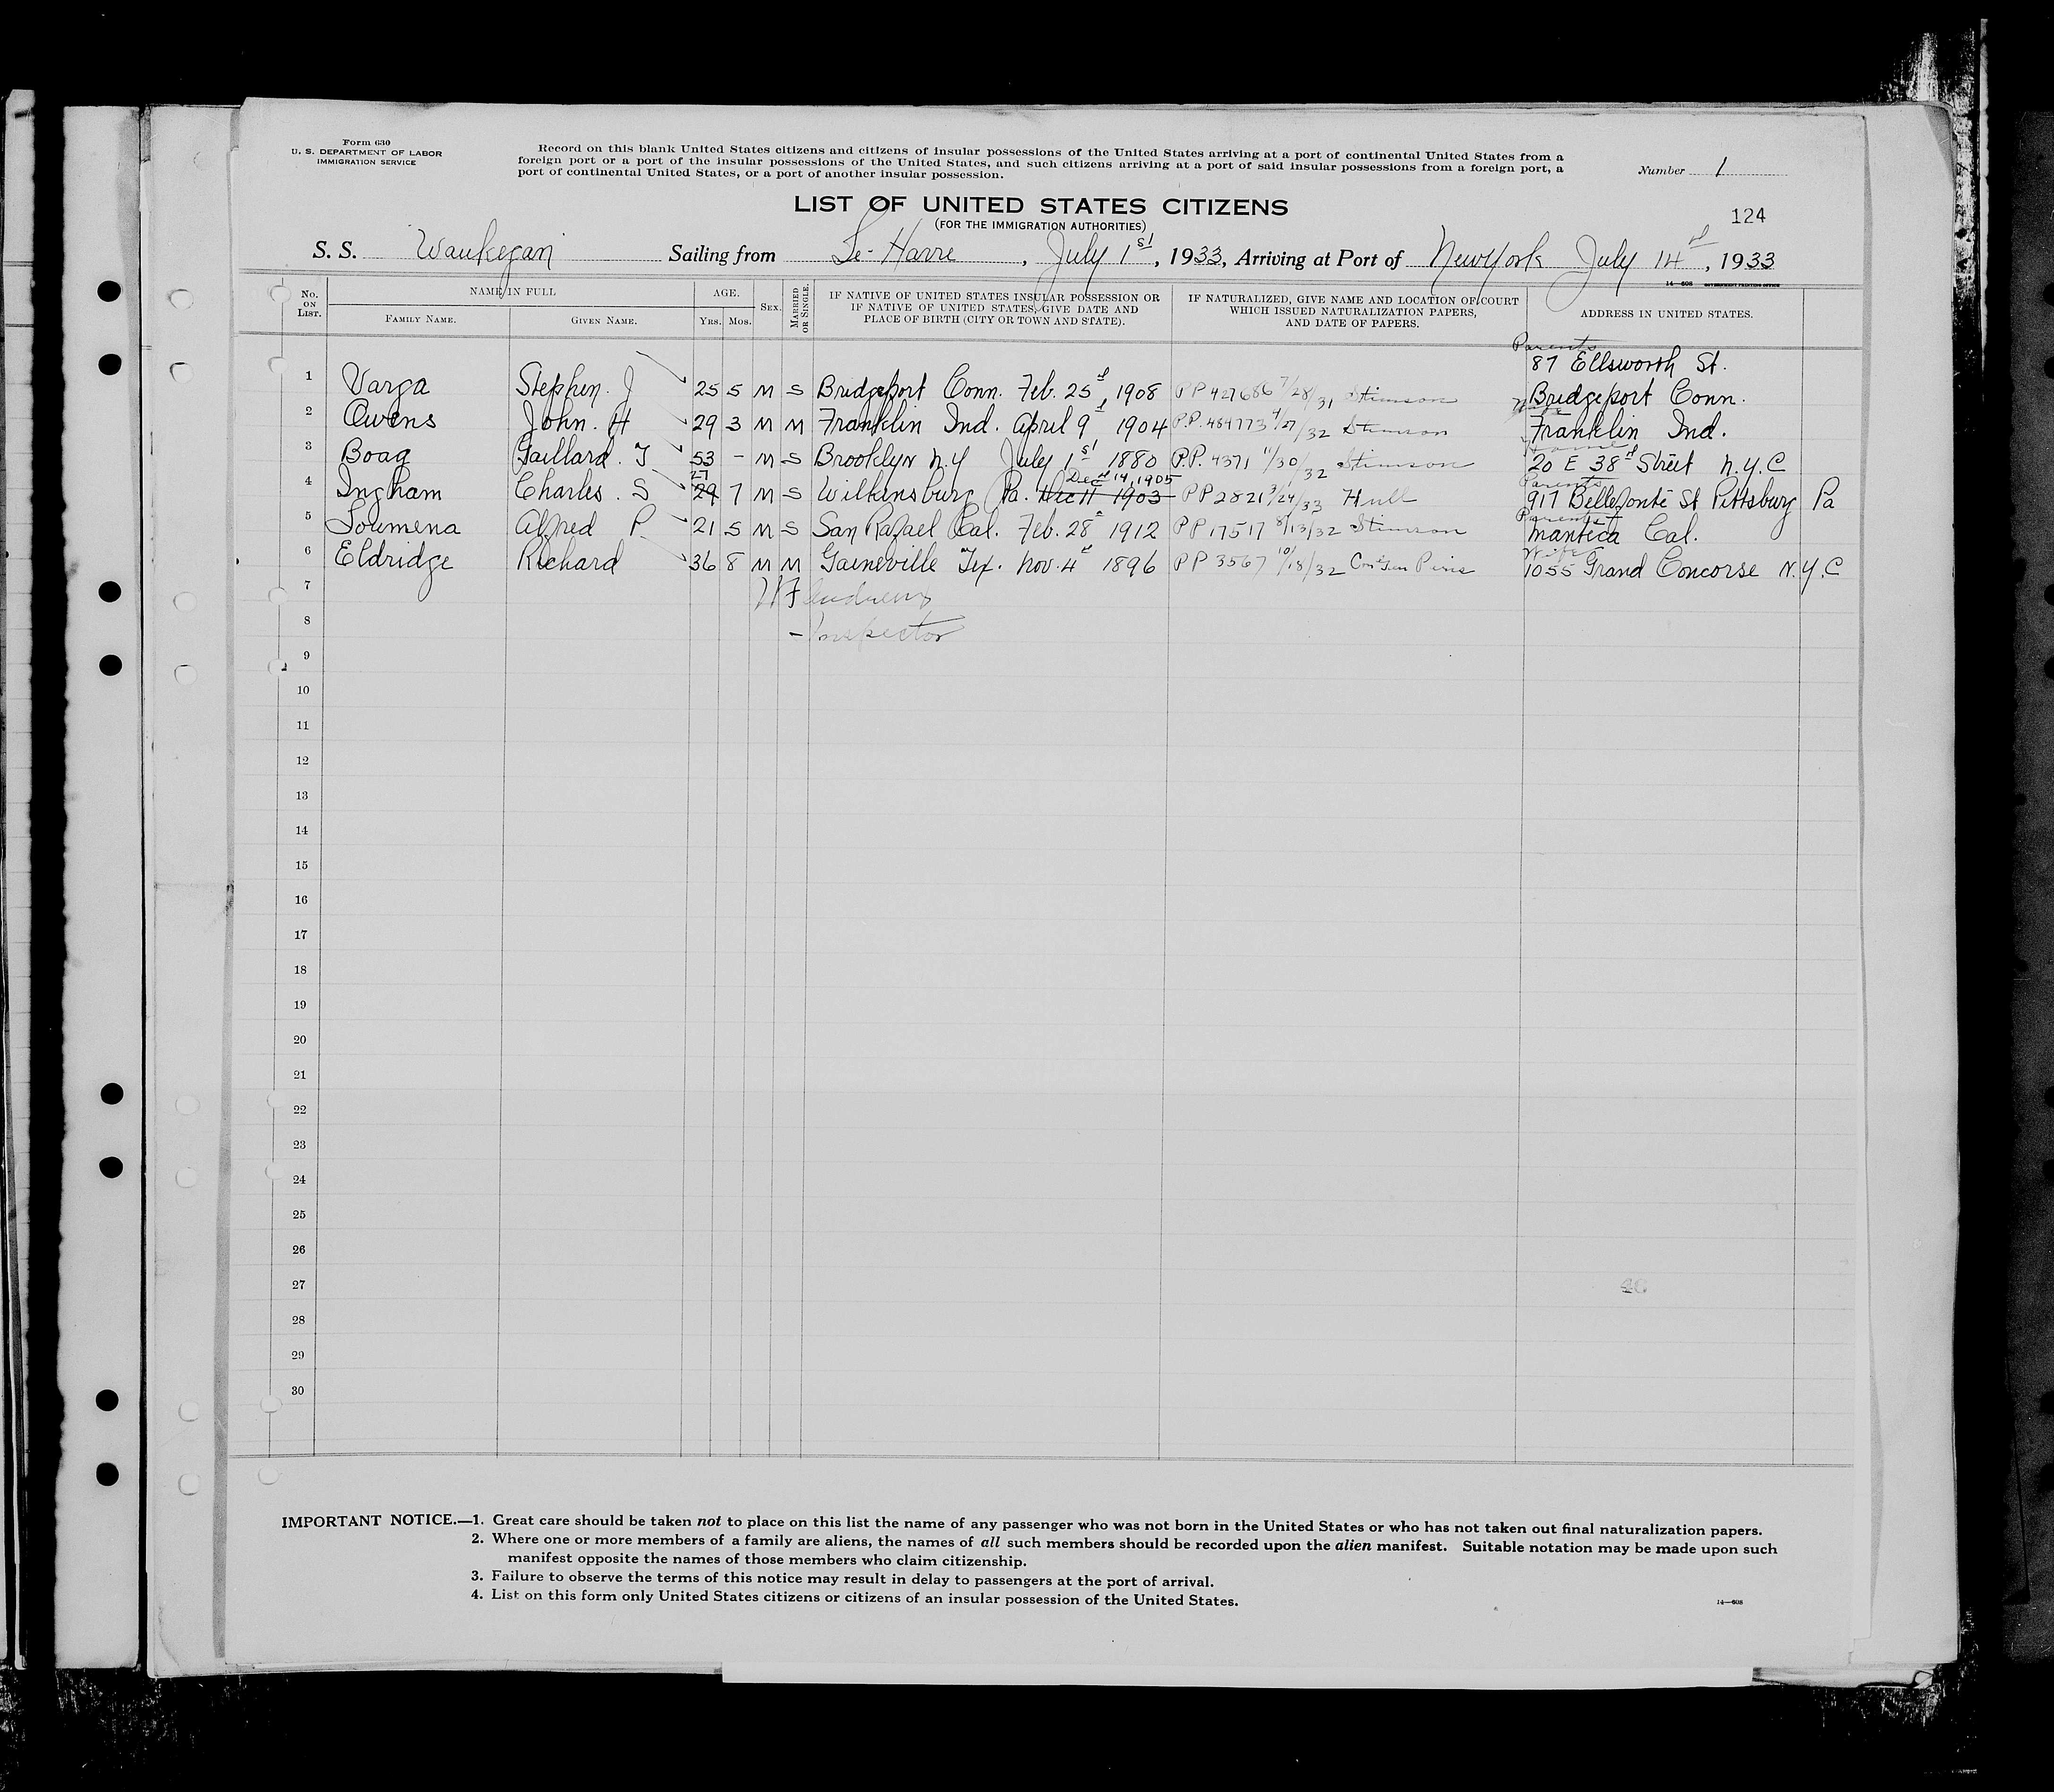 Form 630
U. S. DEPARTMENT OF LABOR
IMMIGRATION SERVICE
Record on this blank United States citizens and citizens of insular possessions of the United States arriving at a port of continental United States from a
foreign port or a port of the insular possessions of the United States, and such citizens arriving at a port of said insular possessions from a foreign port, a
port of continental United States, or a port of another insular possession.
Number 1
LIST OF UNITED STATES CITIZENS
(FOR THE IMMIGRATION AUTHORITIES)
124
S. S. Waukegan Sailing from Le-Havre, July 1st, 1933, Arriving at Port of New York July 14th, 1933
14—608 GOVERNMENT PRINTING OFFICE
No. ON LIST. NAME IN FULL FAMILY NAME. GIVEN NAME. AGE. YRS. MOS. SEX. MARRIED OR SINGLE. IF NATIVE OF UNITED STATES INSULAR POSSESSION OR IF NATIVE OF UNITED STATES, GIVE DATE AND PLACE OF BIRTH (CITY OR TOWN AND STATE). IF NATURALIZED, GIVE NAME AND LOCATION OF COURT WHICH ISSUED NATURALIZATION PAPERS, AND DATE OF PAPERS. ADDRESS IN UNITED STATES.
Parents
87 Ellsworth St.
1 Varga Stephen. J 25 5 M S Bridgeport Conn. Feb. 25d, 1908 PP 427686 7/28/31 Stimson Bridgeport Conn.
2 Owens John. H 29 3 M M Franklin Ind. April 9d 1904 P.P. 484773 4/27/32 Stimson Franklin Ind.
Home
3 Boag Gaillard. T 53 - M S Brooklyn N.Y July 1st 1880 P.P. 4371 11/30/32 Stimson 20 E 38d Street N.Y.C
27 Dec 14, 1905 Parents
4 Ingham Charles. S 29 7 M S Wilkinsburg Pa. Dec 11 1903 PP 2821 3/24/33 Hull 917 Bellefonte St Pittsburg Pa
Parents
5 Soumena Alfred P 21 5 M S San Rafael Cal. Feb. 28 1912 PP 17517 8/13/32 Stimson Manteca Cal.
Wife
6 Eldridge Richard 36 8 M M Gaineville Tex. Nov. 4d 1896 PP 3567 10/18/32 Con Gen Paris 1055 Grand Concorse N.Y.C
7 Andrews
8 -Inspector
9
10
11
12
13
14
15
16
17
18
19
20
21
22
23
24
25
26
27
28
29
30
IMPORTANT NOTICE.—1. Great care should be taken not to place on this list the name of any passenger who was not born in the United States or who has not taken out final naturalization papers.
2. Where one or more members of a family are aliens, the names of all such members should be recorded upon the alien manifest. Suitable notation may be made upon such
manifest opposite the names of those members who claim citizenship.
3. Failure to observe the terms of this notice may result in delay to passengers at the port of arrival.
4. List on this form only United States citizens or citizens of an insular possession of the United States.
14—608